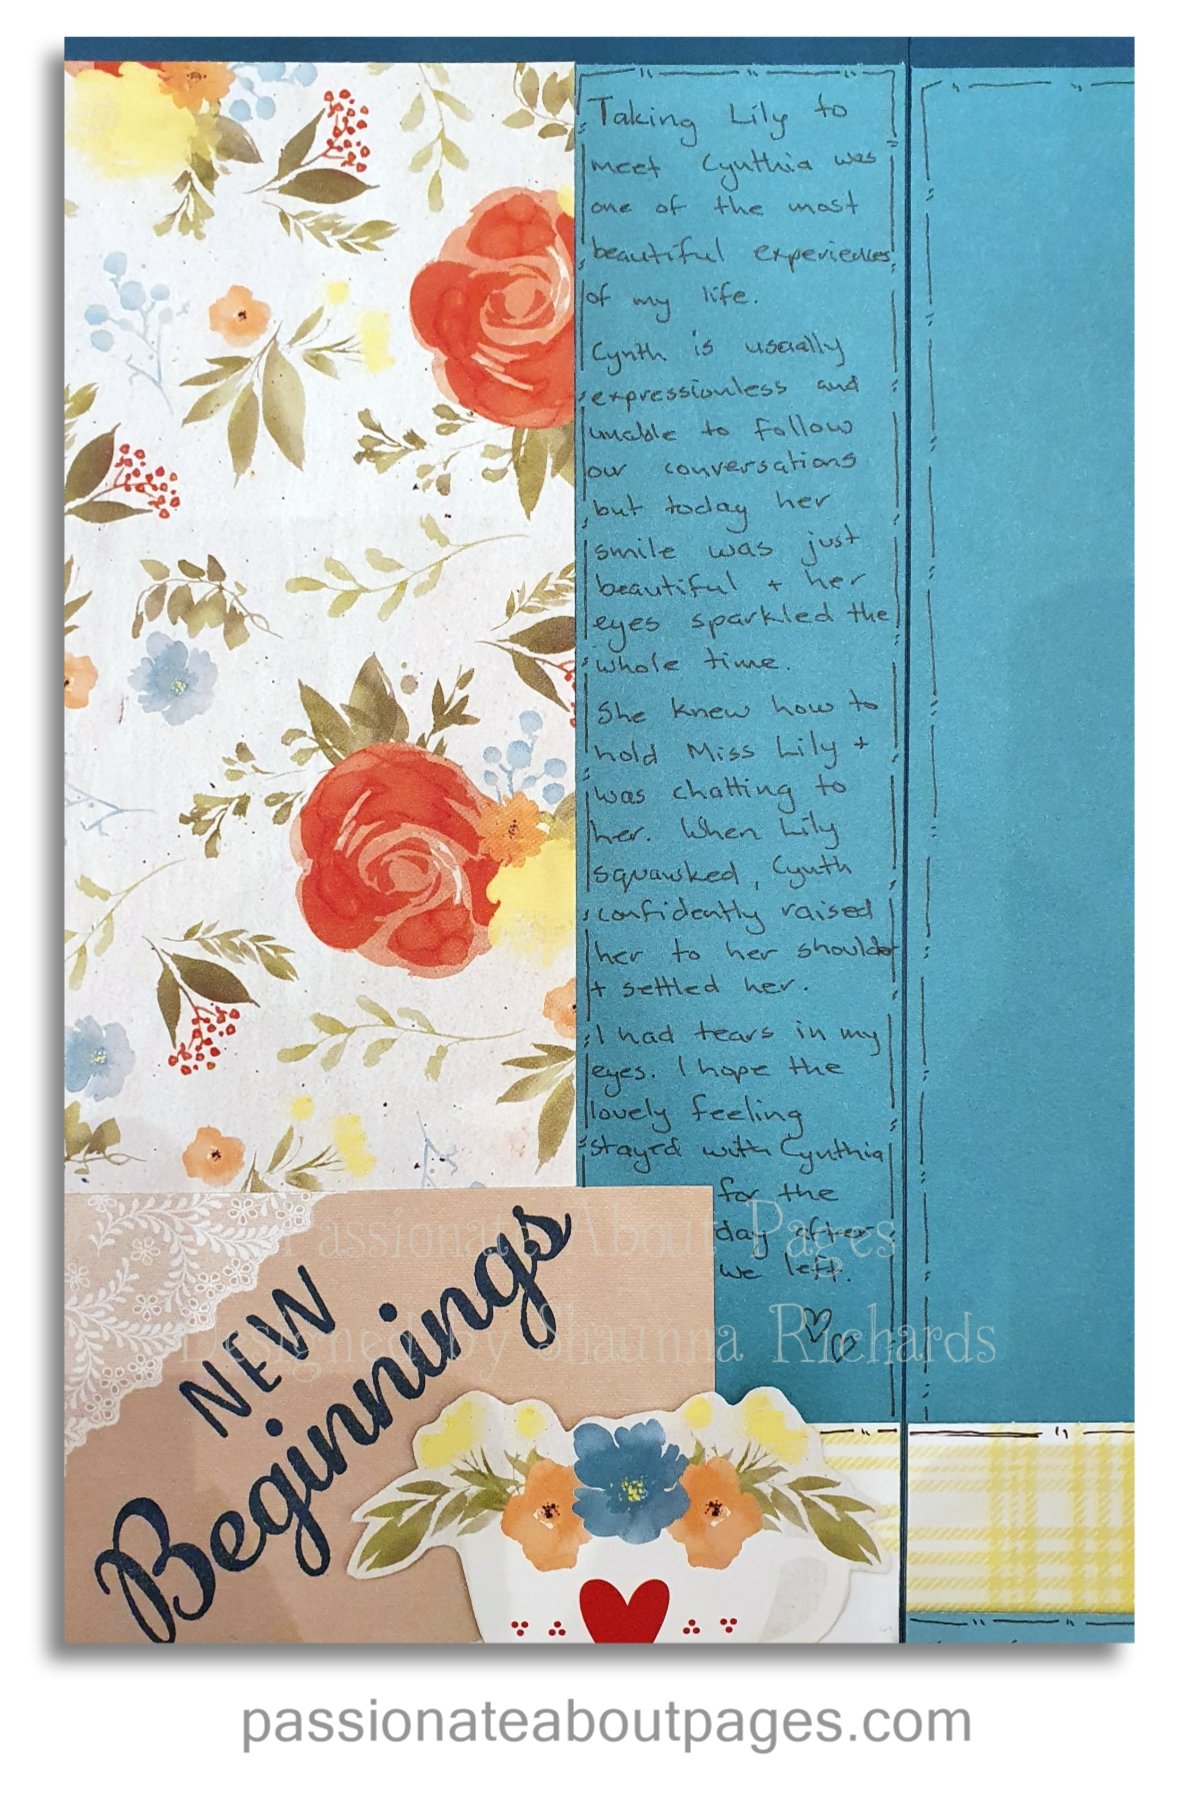 Taking Lily to
meet Cynthia was
one of the most
beautiful experiences
of my life.
Cynth is usually
expressionless and
unable to follow
our conversations
but today her
smile was just
beautiful + her
eyes sparkled the
whole time.
She knew how to
hold Miss Lily +
was chatting to
her. When Lily
squawked, Cynth
confidently raised
her to her shoulder
+ settled her.
I had tears in my
eyes. I hope the
lovely feeling
stayed with Cynthia
for the
day after
we left.
Passionate About Pages
Designed by Shaunna Richards
NEW
Beginnings
passionateaboutpages.com